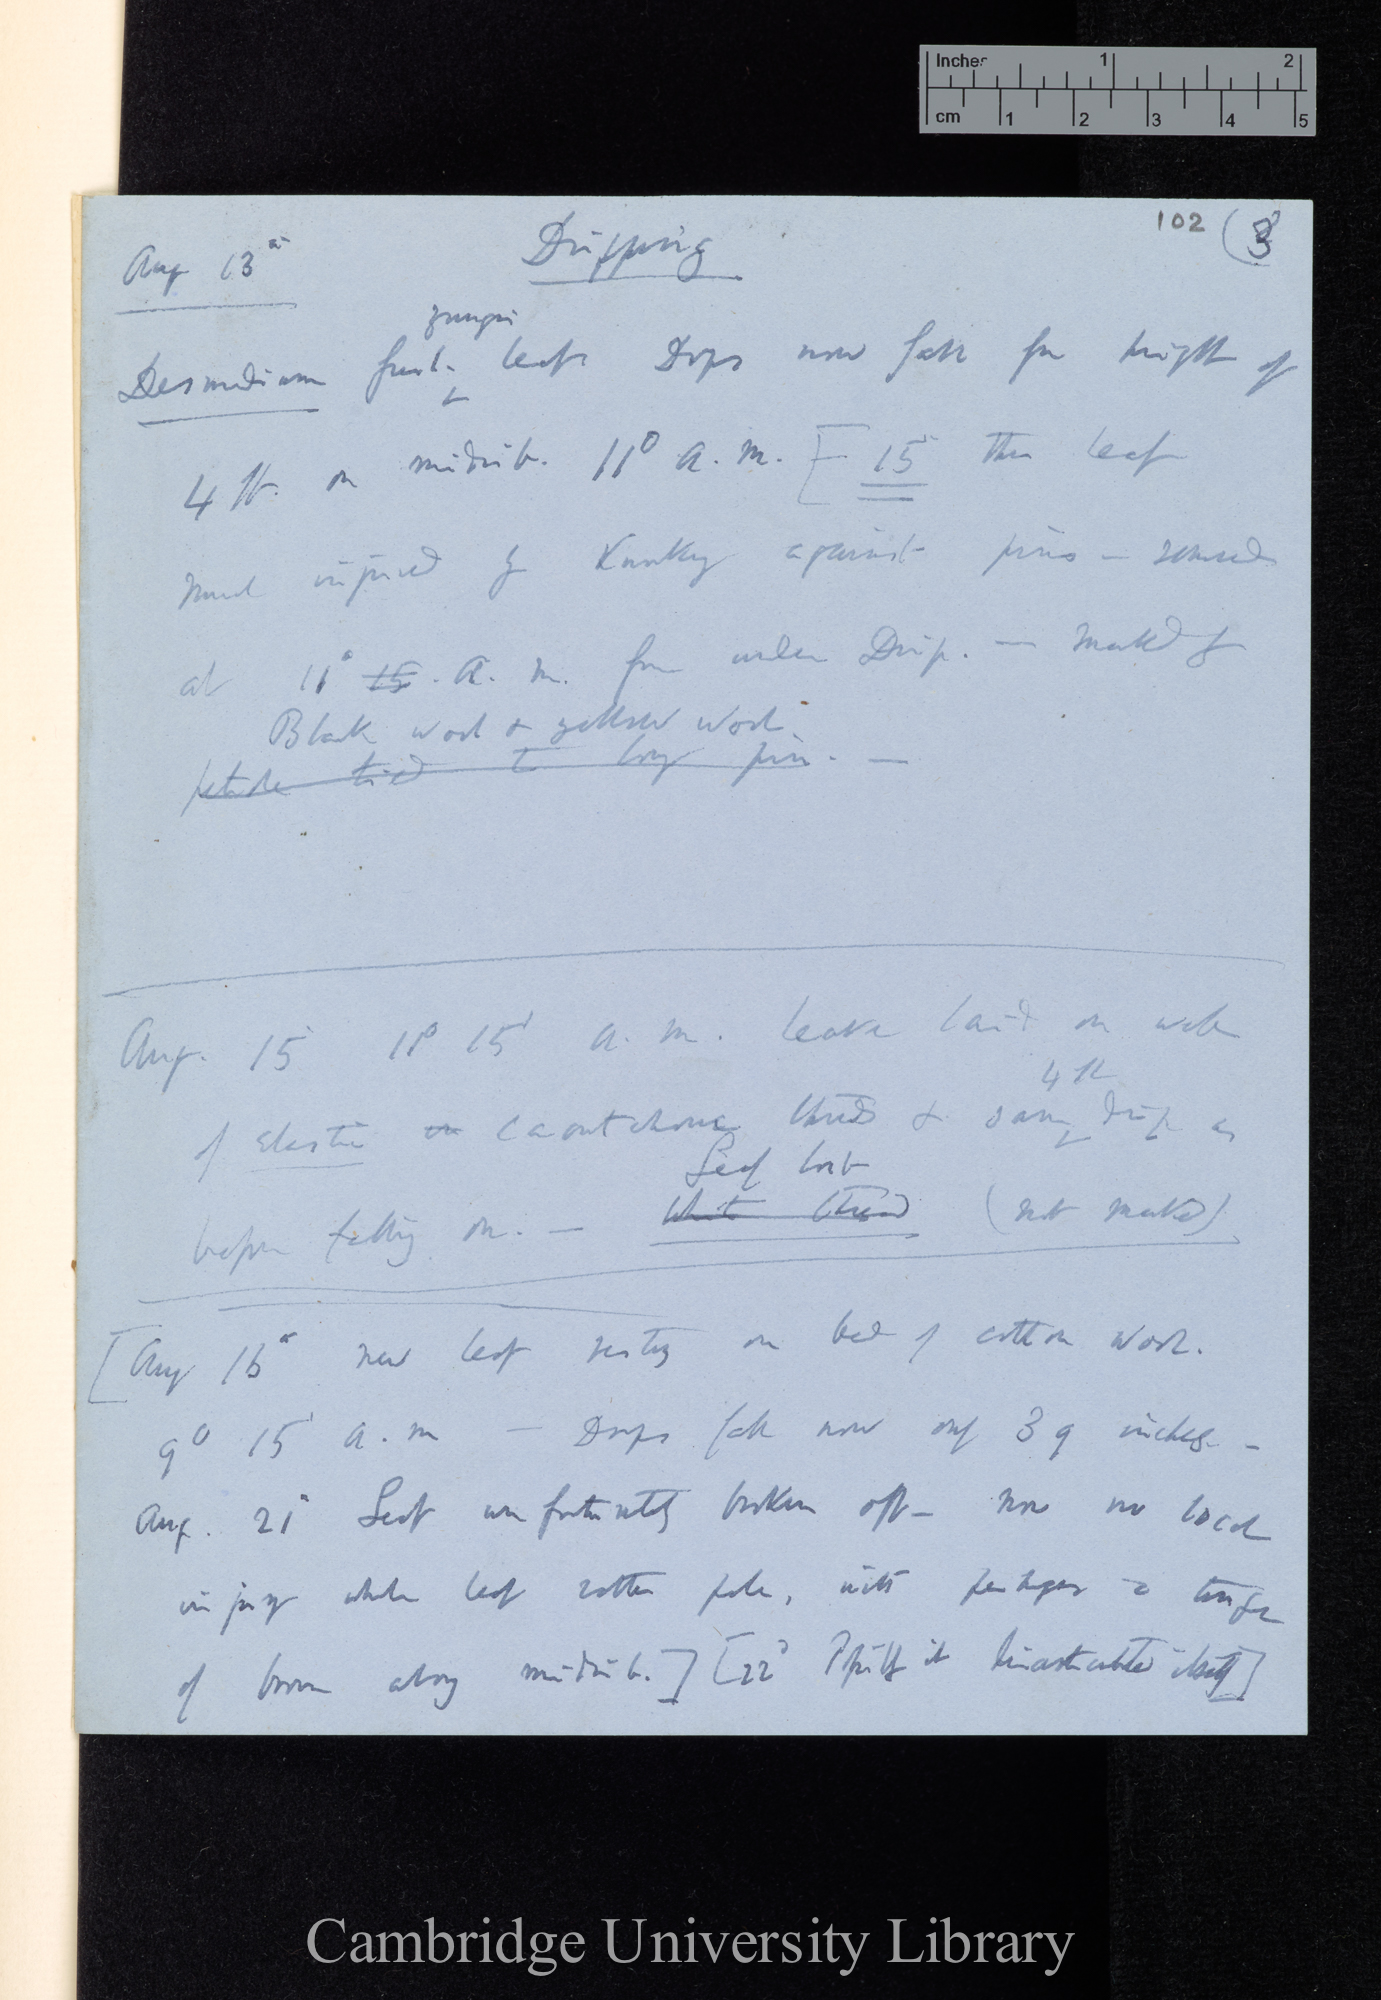 Inches 1 2
cm 1 2 3 4 5
102 (3
Aug 13th Dripping
younger
Desmodium fresh leaf Drops now fall from height of
4 ft. on midrib. 11° a.m. [— 15 this leaf
much injured by Knocking against pins — removed
at 11° 15. a. m. from under Drip. — marked by
Black wool & yellow wool
petiole tied to long pin. —
Aug. 15 11° 15' a. m. leave laid on web
4 ft
of elastic caoutchouc thread & same drip as
Leaf lost
before falling on. — white thread (not marked)
[Aug 16th new leaf resting on bed of cotton wool.
9° 15' a.m — Drops fall now only 39 inches. -
Aug. 21st Leaf unfortunately broken off — now no local
injury whole leaf rather pale, with perhaps a tinge
of brown along midrib.] [22d itself]
Cambridge University Library